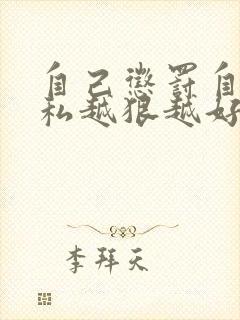 自己惩罚自
私越狠越好
李拜天